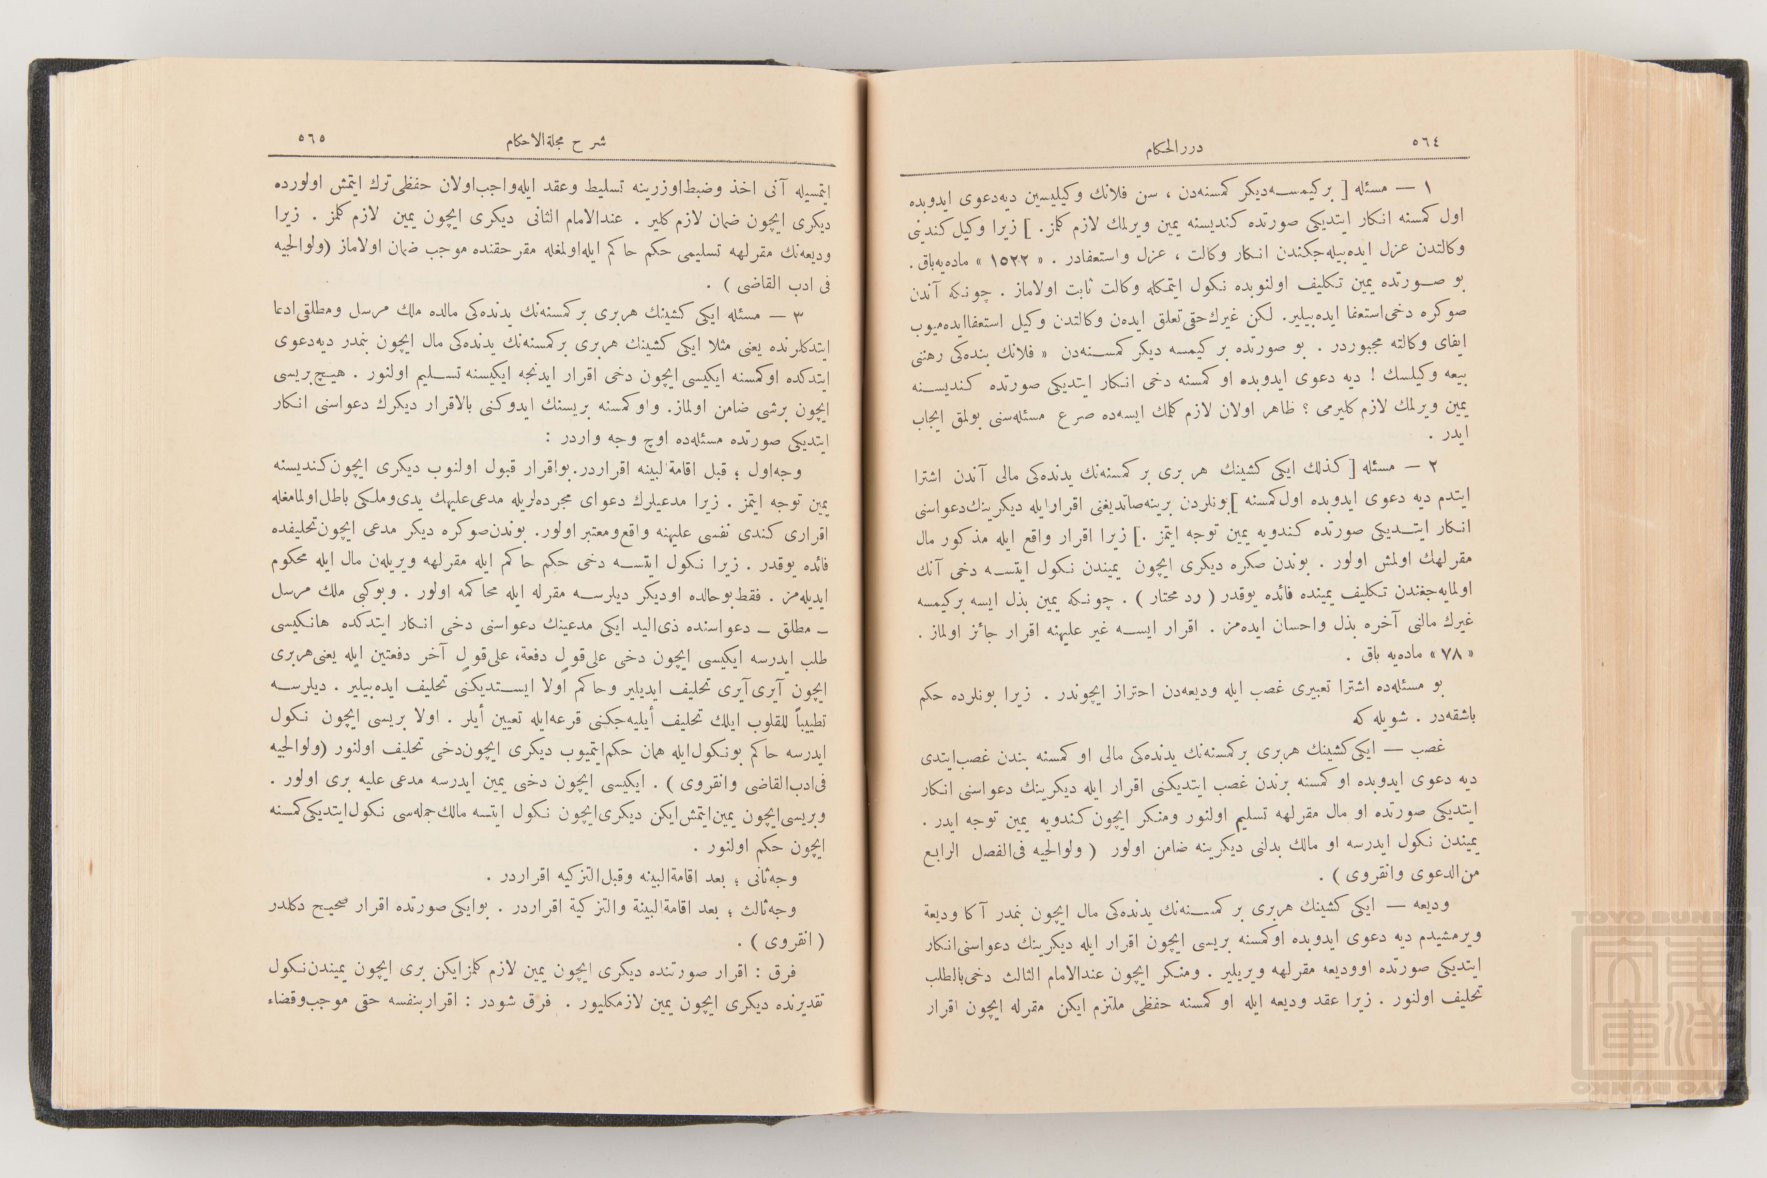 ٥٦٤
درر الحكام
١ — مسئله [ بر كيمسه ديكر كمسنه‌دن ، سن فلانك وكيليسين ديه دعوى ايدوبده
اول كمسنه انكار ايتديكى صورتده كنديسنه يمين ويرلمك لازم كلمز . ] زيرا وكيل كندينى
وكالتدن عزل ايده‌بيله‌جكندن انكار وكالت ، عزل واستعفادر . « ١٥٢٢ » ماده‌يه باق .
بو صورتده يمين تكليف اولنوبده نكول ايتمكله وكالت ثابت اولاماز . چونكه آندن
صوكره دخى استعفا ايده‌بيلير . لكن غيرك حقى تعلق ايدن وكالتدن وكيل استعفا ايده‌ميوب
ايفاى وكالته مجبوردر . بو صورتده بر كيمسه ديكر كمسنه‌دن « فلانك بنده‌كى رهننى
بيعه وكيلسك ! ديه دعوى ايدوبده او كمسنه دخى انكار ايتديكى صورتده كنديسنه
يمين ويرلمك لازم كليرمى ؟ ظاهر اولان لازم كلمك ايسه‌ده صرع مسئله‌سنى بولمق ايجاب
ايدر .
٢ — مسئله [ كذلك ايكى كشينك هر برى بر كمسنه‌نك يدنده‌كى مالى آندن اشترا
ايتدم ديه دعوى ايدوبده اول كمسنه ] بونلردن برينه صاتديغنى اقرار ايله ديكرينك دعواسنى
انكار ايتديكى صورتده كندويه يمين توجه ايتمز . ] زيرا اقرار واقع ايله مذكور مال
مقرلهك اولمش اولور . بوندن صكره ديكرى ايچون يميندن نكول ايتسه دخى آنك
اولمايه‌جغندن تكليف يمينده فائده يوقدر ( رد محتار ) . چونكه يمين بذل ايسه بركيمسه
غيرك مالنى آخره بذل واحسان ايده‌مز . اقرار ايسه غير عليهنه اقرار جائز اولماز .
« ٧٨ » ماده‌يه باق .
بو مسئله‌ده اشترا تعبيرى غصب ايله وديعه‌دن احتراز ايچوندر . زيرا بونلرده حكم
باشقه‌در . شويله كه
غصب — ايكى كشينك هربرى بر كمسنه‌نك يدنده‌كى مالى او كمسنه بندن غصب ايتدى
ديه دعوى ايدوبده او كمسنه برندن غصب ايتديكنى اقرار ايله ديكرينك دعواسنى انكار
ايتديكى صورتده او مال مقرلهه تسليم اولنور ومنكر ايچون كندويه يمين توجه ايدر .
يميندن نكول ايدرسه او مالك بدلنى ديكرينه ضامن اولور ( ولوالجيه فى الفصل الرابع
من الدعوى وانقروى ) .
وديعه — ايكى كشينك هربرى بر كمسنه‌نك يدنده‌كى مال ايچون بنمدر آكا وديعة
ويرمشيدم ديه دعوى ايدوبده اوكمسنه بريسى ايچون اقرار ايله ديكرينك دعواسنى انكار
ايتديكى صورتده اووديعه مقرلهه ويريلير . ومنكر ايچون عندالامام الثالث دخى بالطلب
تحليف اولنور . زيرا عقد وديعه ايله او كمسنه حفظى ملتزم ايكن مقرله ايچون اقرار
٥٦٥
شرح مجلة الاحكام
ايتمسيله آنى اخذ وضبط اوزرينه تسليط وعقد ايله واجب اولان حفظى ترك ايتمش اولورده
ديكرى ايچون ضمان لازم كلير . عندالامام الثانى ديكرى ايچون يمين لازم كلمز . زيرا
وديعه‌نك مقرلهه تسليمى حكم حاكم ايله اولمغله مقر حقنده موجب ضمان اولاماز ( ولوالجيه
فى ادب القاضى ) .
٣ — مسئله ايكى كشينك هربرى بر كمسنه‌نك يدنده‌كى مالده ملك مرسل ومطلقى ادعا
ايتدكلرنده يعنى مثلا ايكى كشينك هربرى بركمسنه‌نك يدنده‌كى مال ايچون بنمدر ديه دعوى
ايتدكده اوكمسنه ايكيسى ايچون دخى اقرار ايدنجه ايكيسنه تسليم اولنور . هيچ بريسى
ايچون برشى ضامن اولماز . واو كمسنه بريسنك ايدوكنى بالاقرار ديكرك دعواسنى انكار
ايتديكى صورتده مسئله‌ده اوچ وجه واردر :
وجه اول ؛ قبل اقامة البينه اقراردر . بواقرار قبول اولنوب ديكرى ايچون كنديسنه
يمين توجه ايتمز . زيرا مدعيلرك دعواى مجرده‌لريله مدعى عليهك يدى وملكى باطل اولمامغله
اقرارى كندى نفسى عليهنه واقع ومعتبر اولور . بوندن صوكره ديكر مدعى ايچون تحليفده
فائده يوقدر . زيرا نكول ايتسه دخى حكم حاكم ايله مقرلهه ويريلن مال ايله محكوم
ايديله‌مز . فقط بوحالده اوديكر ديلرسه مقرله ايله محاكمه اولور . وبوكبى ملك مرسل
ـ مطلق ـ دعواسنده ذى اليد ايكى مدعينك دعواسنى دخى انكار ايتدكده هانكيسى
طلب ايدرسه ايكيسى ايچون دخى على قول دفعة، على قول آخر دفعتين ايله يعنى هربرى
ايچون آيرى آيرى تحليف ايديلير وحاكم اولا ايستديكنى تحليف ايده‌بيلير . ديلرسه
تطييباً للقلوب ايلك تحليف أيليه‌جكنى قرعه ايله تعيين أيلر . اولا بريسى ايچون نكول
ايدرسه حاكم بونكول ايله همان حكم ايتميوب ديكرى ايچون دخى تحليف اولنور ( ولوالجيه
فى ادب القاضى وانقروى ) . ايكيسى ايچون دخى يمين ايدرسه مدعى عليه برى اولور .
وبريسى ايچون يمين ايتمش ايكن ديكرى ايچون نكول ايتسه مالك جمله‌سى نكول ايتديكى كمسنه
ايچون حكم اولنور .
وجه ثانى ؛ بعد اقامة البينه وقبل التزكيه اقراردر .
وجه ثالث ؛ بعد اقامة البينة والتزكية اقراردر . بوايكى صورتده اقرار صحيح دكلدر
( انقروى ) .
فرق : اقرار صورتنده ديكرى ايچون يمين لازم كلمز ايكن برى ايچون يميندن نكول
تقديرنده ديكرى ايچون يمين لازمكليور . فرق شودر : اقرار بنفسه حقى موجب وقضاء
TOYO BUNKO
東洋
文庫
TOYO BUNKO